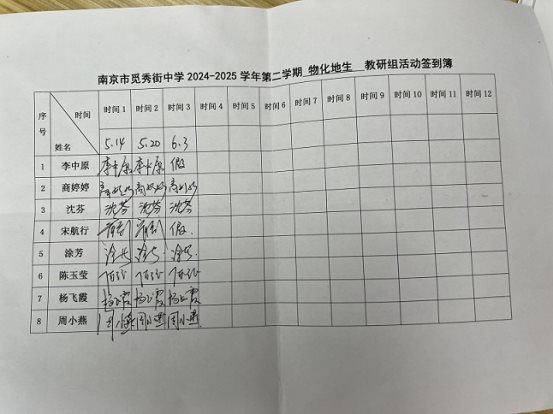 南京市觅秀街中学 2024-2025 学年第二学期 物化地生 教研组活动签到簿
序号 时间 姓名 时间 1 时间 2 时间 3 时间 4 时间 5 时间 6 时间 7 时间 8 时间 9 时间 10 时间 11 时间 12
5.14 5.20 6.3
1 李中原 李中原 李中原 假
2 商婷婷 商婷婷 商婷婷 商婷婷
3 沈芬 沈芬 沈芬 沈芬
4 宋航行 假
5 涂芳 涂芳 涂芳 涂芳
6 陈玉莹
7 杨飞霞 杨飞霞 杨飞霞 杨飞霞
8 周小燕 周小燕 周小燕 周小燕